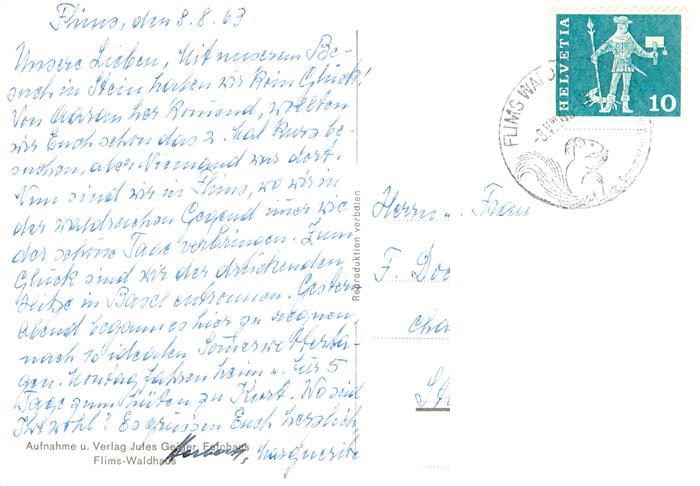 Flims, den 8.8.63
Unsere Lieben, Mit unserem Be-
such in Stein haben wir kein Glück!
Von her komend, wollten
wir Euch schon das 2. Mal kurz be-
suchen, aber Niemand war dort.
Nun sind wir in Flims, wo wir in
der waldreichen Gegend imer wie
der schöne Tage verbringen. Zum
Glück sind wir der drückenden
Hitze in Basel entronnen. Gestern
Abend begann es hier zu regnen,
nach 10 idealen Somerwetterta-
gen. Montag fahren heim u. für 5
Tage zum hüten zu Kurt. Wo sind
Ihr wohl? Es grüssen Euch herzlich
Aufnahme u. Verlag Jules Geiger, Fotohaus
Flims-Waldhaus
Herbert, Marguerite
Reproduktion verboten
HELVETIA
10
FLIMS WALD
Herrn u. Frau
F. Doc
cha